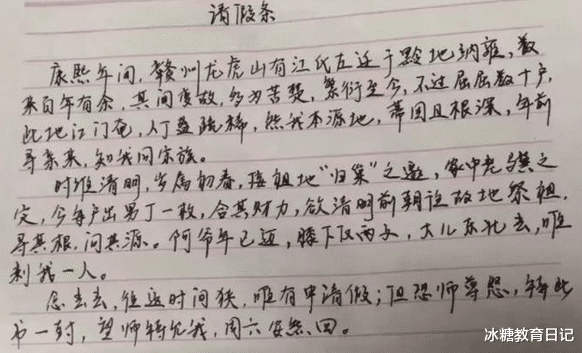 请假条
康熙年间，赣州龙虎山有江氏左迁于黔地纳雍，数
来百年有余，其间变故，多为苦楚，繁衍至今，不过屈屈数十户，
此地江门奄，人丁益疏稀，然我本源地，蒂固且根深，年前
寻亲来，知我同宗族。
时维清明，岁属初春，接祖地“归巢”之邀，家中老
定，今每户出男丁一枚，合其财力，欲清明前朝往故地祭祖，
寻其根，问其源。阿爷年已迈，膝下仅两子，大儿东北去，唯
剩我一人。
念去去，往返时间狭，唯有申请假；但恐师尊怒，特此
书一封，望师特允我，周六安然回。
冰糖教育日记